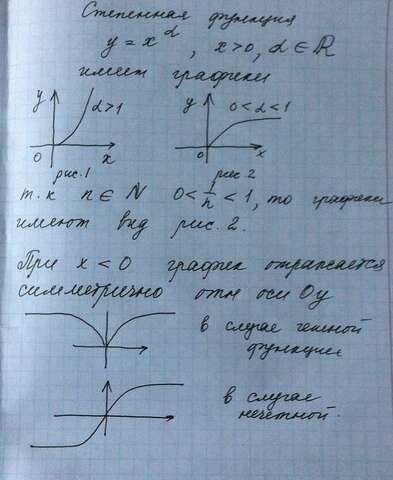 Степенная функция
y = x^α, x>0, α ∈ R
имеет графики
y α>1
0 x
рис. 1
y 0<α<1
0 x
рис 2
т.к n ∈ N 0 < 1/n < 1, то графики
имеют вид рис 2.
При x < 0 график отражается
симметрично отн оси Oy
в случае четной
функции
в случае
нечётной.